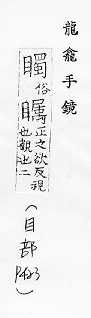 龍龕手鏡
俗矚正之欲反視
也觀也二
(目部 P423)